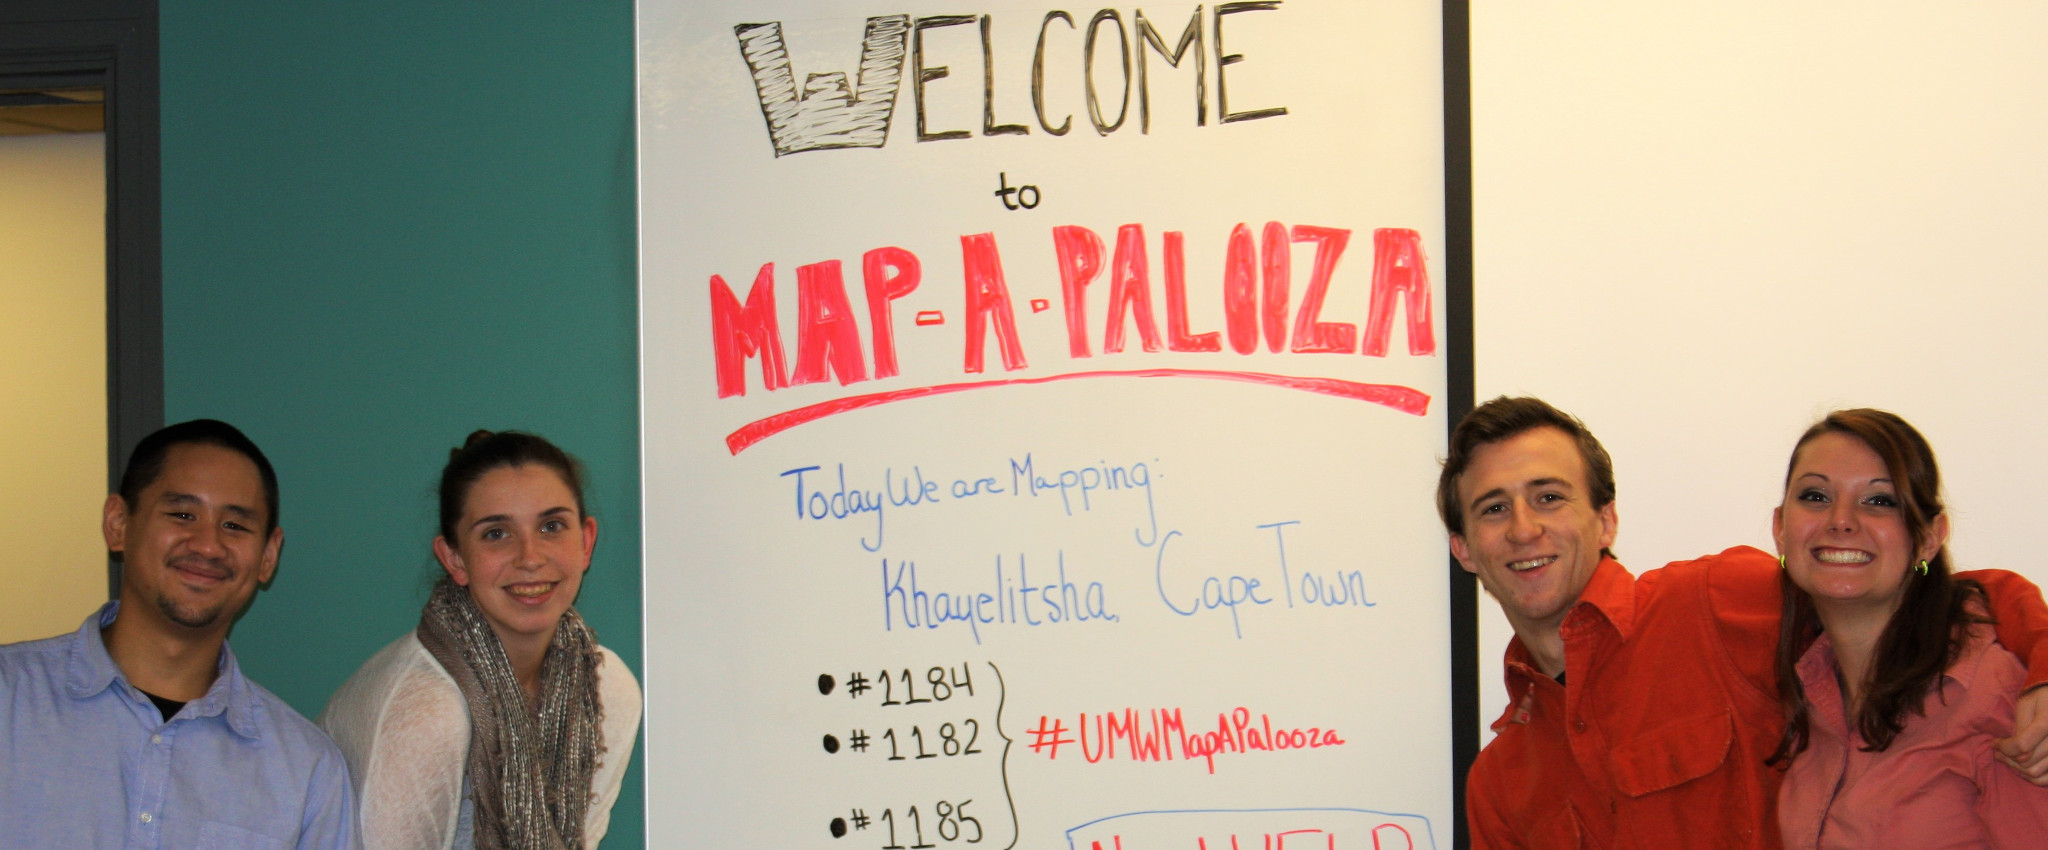 WELCOME
to
MAP-A-PALOOZA
Today We are Mapping:
Khayelitsha, Cape Town
• #1184
• #1182
• #1185
#UMWMapAPalooza
Need HELP